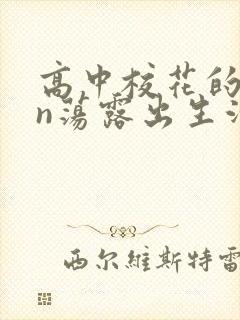 高中校花的
n荡露出生
西尔維斯特雷